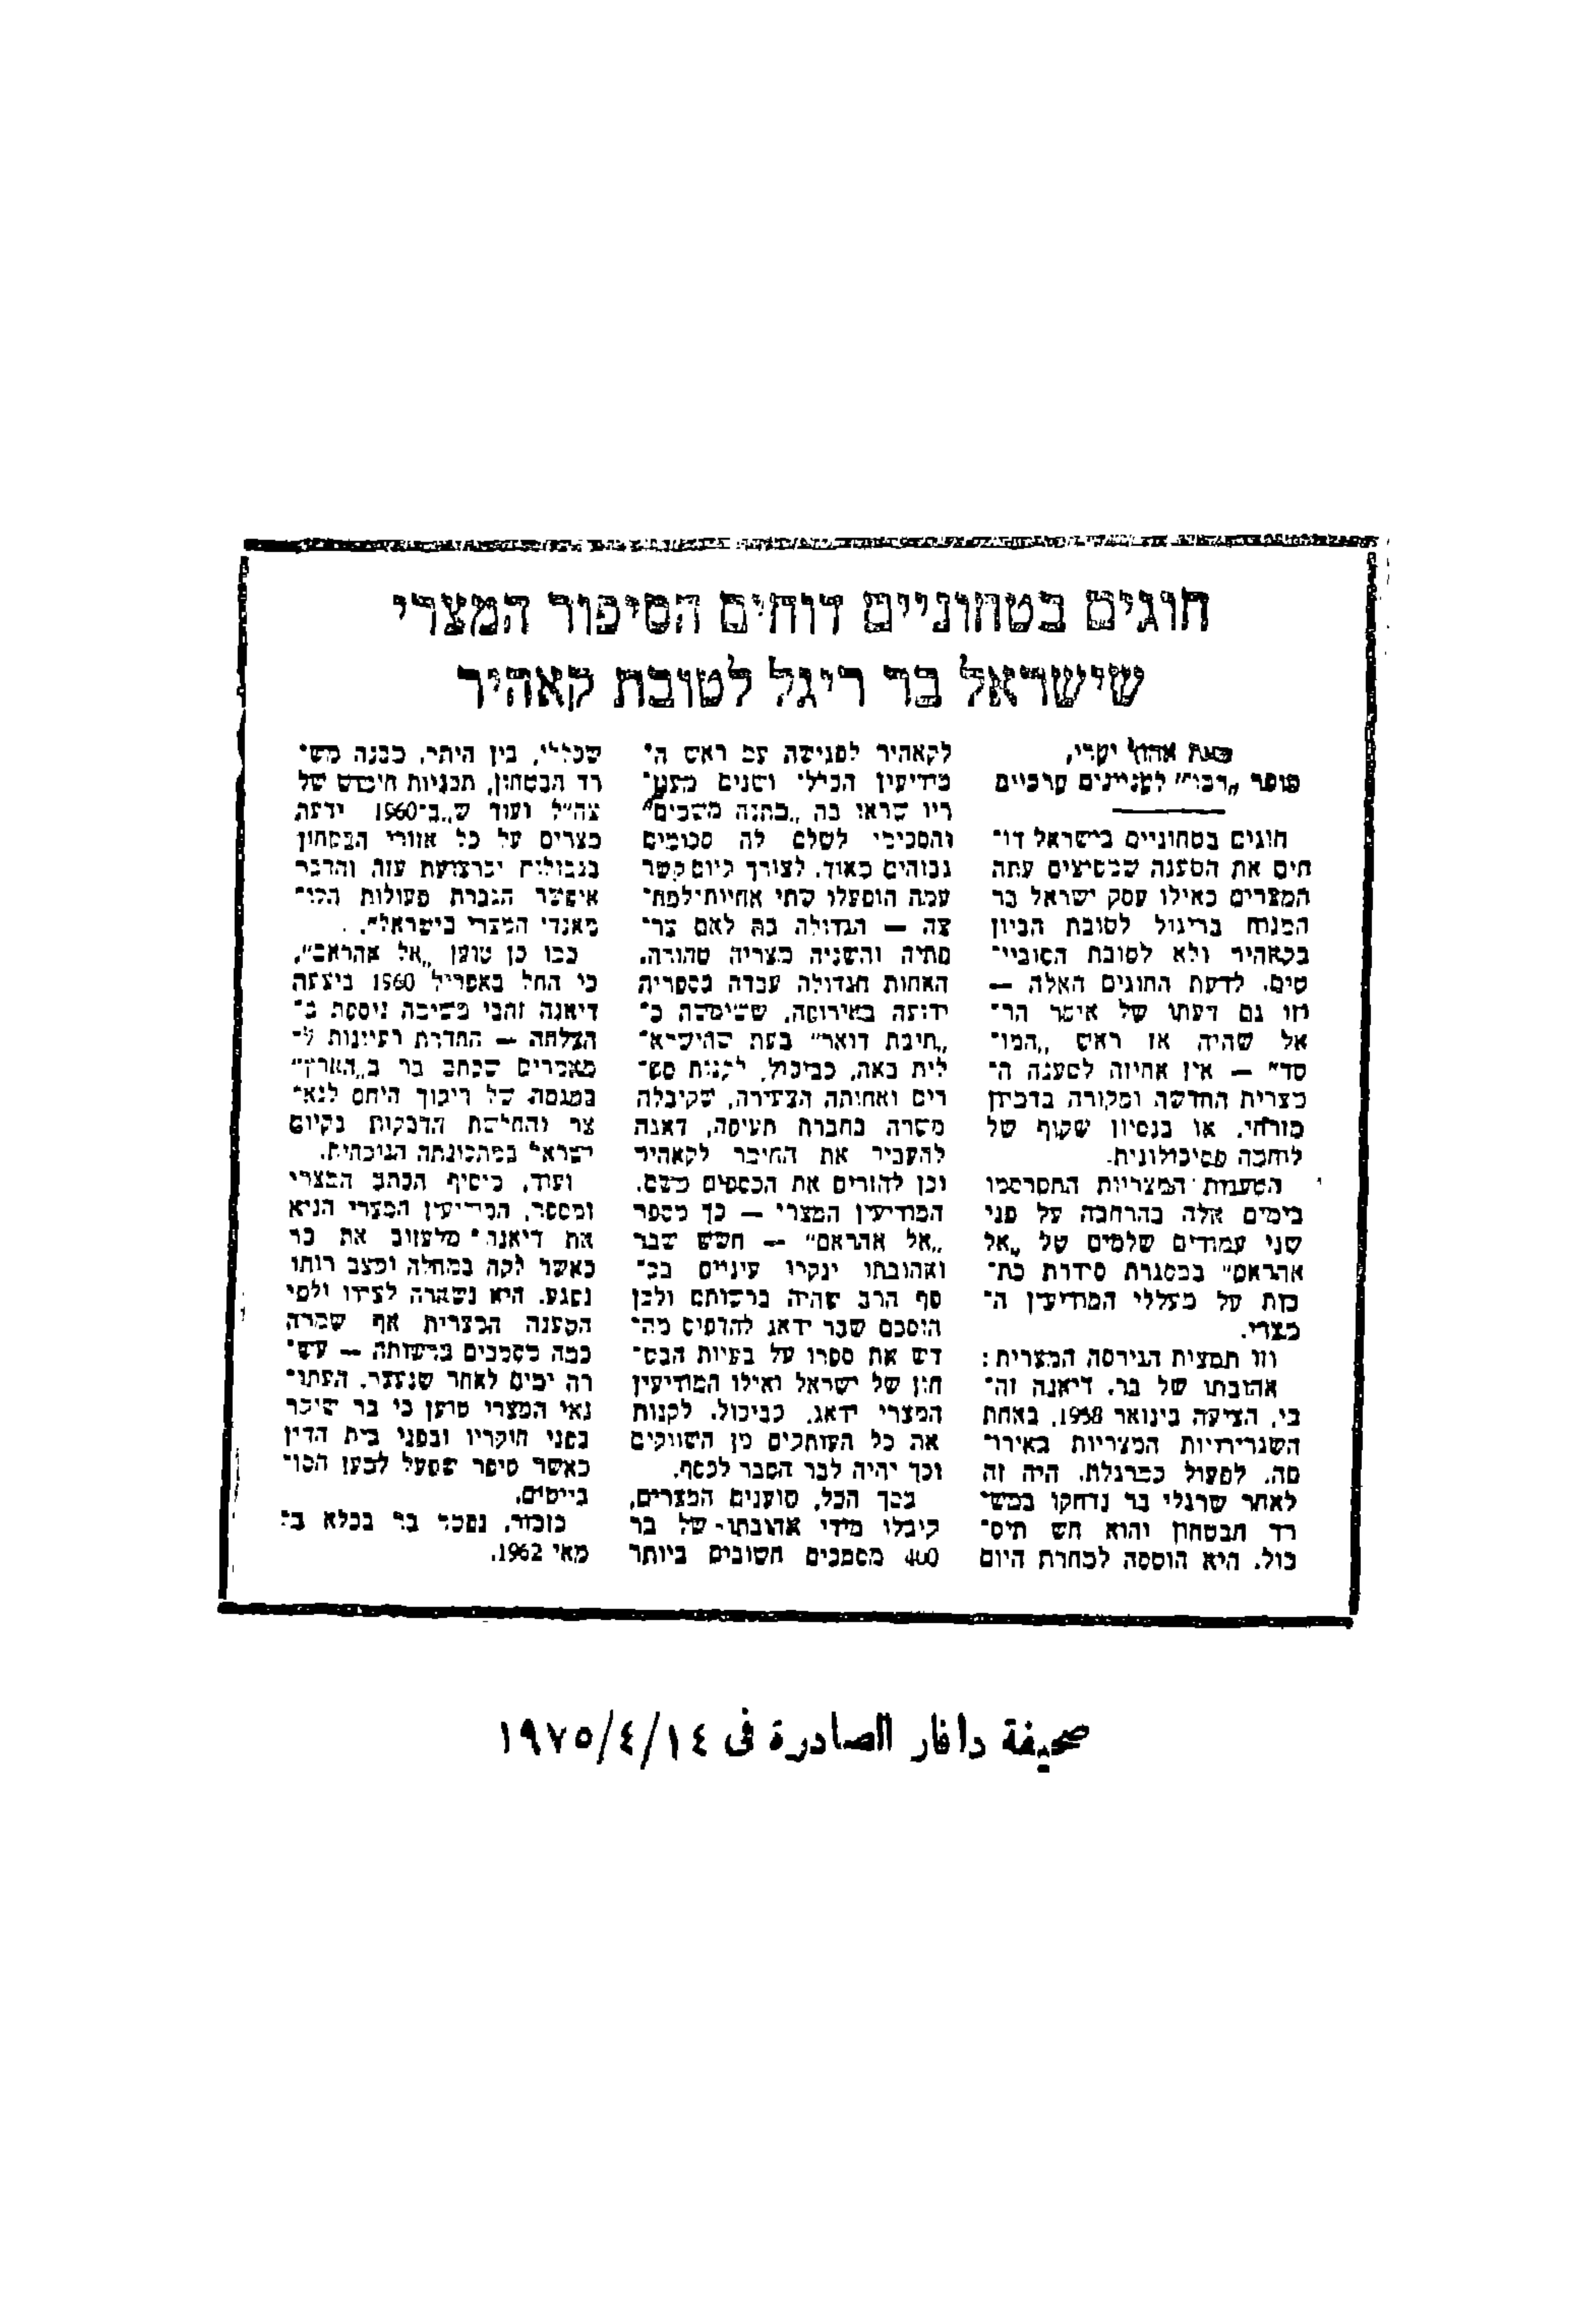 חוגים בטחוניים דוחים הסיפור המצרי
שישראל בר ריגל לטובת קאהיר
מאת אהוד יערי,
סופר „דבר” לעניינים ערביים
חוגים בטחוניים בישראל דו־
חים את הטענה שמפיצים עתה
המצרים כאילו עסק ישראל בר
המנוח בריגול לטובת הביון
בקאהיר ולא לטובת הסוביי־
טים. לדעת החוגים האלה —
וזו גם דעתו של איסר הר־
אל שהיה אז ראש „המו־
סד” — אין אחיזה לטענה ה־
מצרית החדשה ומקורה בדמיון
מזרחי, או בנסיון שקוף של
לוחמה פסיכולוגית.
הטענות המצריות התפרסמו
בימים אלה בהרחבה על פני
שני עמודים שלמים של „אל
אהראם” במסגרת סידרת כת־
בות על מעללי המודיעין ה־
מצרי.
וזו תמצית הגירסה המצרית:
אהובתו של בר, דיאנה זה־
בי, הציעה בינואר 1958, באחת
השגרירויות המצריות באירו־
פה, לפעול כמרגלת. היה זה
לאחר שרגלי בר נדחקו במש־
רד הבטחון והוא חש תיס־
כול. היא הוטסה למחרת היום
לקאהיר לפגישה עם ראש ה־
מודיעין הכללי ושנים מעוז־
ריו שראו בה „מתנה משמים”
והסכימו לשלם לה סכומים
גבוהים מאוד. לצורך קיום קשר
עמה הופעלו שתי אחיות למח־
צה — הגדולה בת לאם צר־
פתיה והשניה מצריה טהורה.
האחות הגדולה עבדה בספריה
ידועה באירופה, ששימשה כ־
„תיבת דואר” בעת שהישרא־
לית באה, כביכול, לקנות ספ־
רים ואחותה הצעירה, שקיבלה
משרה בחברת תעופה, דאגה
להעביר את החומר לקאהיר
וכן להזרים את הכספים משם.
המודיעין המצרי — כך מספר
„אל אהראם” — חשש שבר
ואהובתו ינקרו עיניים בכ־
סף הרב שהיה ברשותם ולכן
הוסכם שבר ידאג להדפיס מה־
דש את ספרו על בעיות הבט־
חון של ישראל ואילו המודיעין
המצרי ידאג, כביכול, לקנות
את כל העותקים מן השווקים
וכך יהיה לבר הסבר לכסף.
בסך הכל, טוענים המצרים,
קיבלו מידי אהובתו של בר
400 מסמכים חשובים ביותר
שכללו, בין היתר, מבנה מש־
רד הבטחון, תכניות חימוש של
צה״ל ועוד ש„ב־1960 ידעה
מצרים על כל אזורי הבטחון
בגבולות וברצועת עזה והדבר
איפשר הגברת פעולות הקו־
מאנדו המצרי בישראל”.
כמו כן טוען „אל אהראם”,
כי החל באפריל 1960 ביצעה
דיאנה זהבי משימה נוספת ב־
הצלחה — החדרת רעיונות ל־
מאמרים שכתב בר ב„הארץ”
במגמה של ריכוך היחס לנא־
צר והחלשת הדבקות בקיום
ישראל במתכונתה הנוכחית.
ועוד, מוסיף הכתב המצרי
ומספר, המודיעין המצרי הניא
את דיאנה מלעזוב את בר
כאשר לקה במחלה ומצב רוחו
נפגע. היא נשארה לצידו ולפי
הטענה המצרית אף שמרה
כמה מסמכים ברשותה — עש־
רה ימים לאחר שנעצר. העתו־
נאי המצרי טוען כי בר שיקר
בפני חוקריו ובפני בית הדין
כאשר סיפר שפעל למען הסו־
בייטים.
כזכור, נפטר בר בכלא ב־
מאי 1962.
صحيفة دافار الصادرة فى ١٩٧٥/٤/١٤